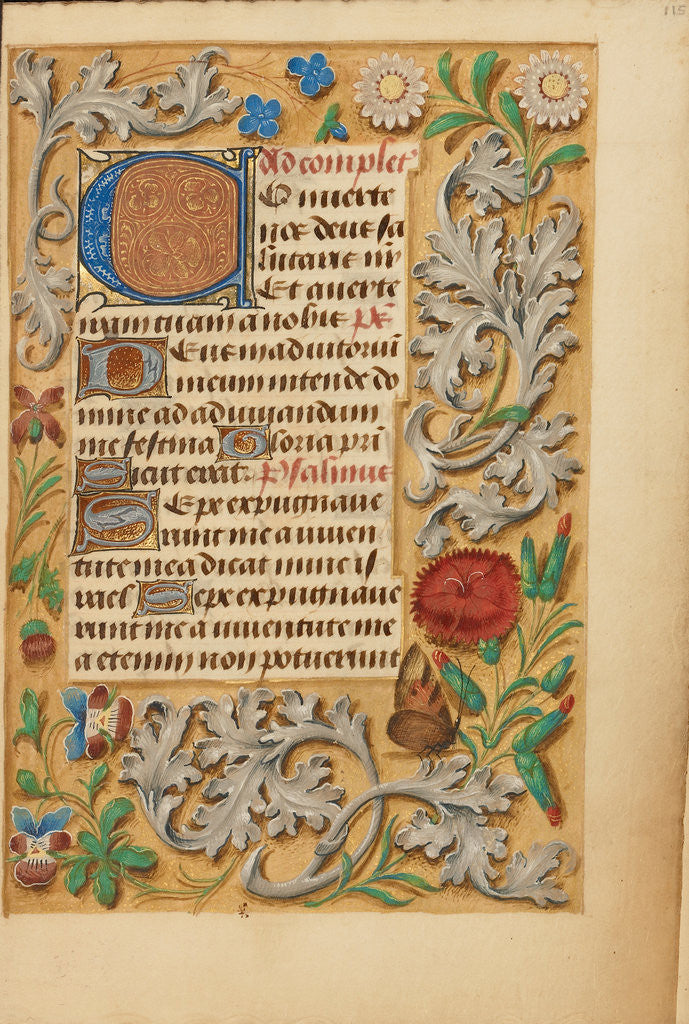 115
Ad complet
Conuerte
nos deus sa
lutaris nr̄
Et auerte
iram tuam a nobis ps̄
Deus in adiutoriū
meum intende do
mine ad adiuuandum
me festina Gloria pr̄i
Sicut erat. Psalmus
Sepe expugnaue
runt me a iuuen
tute mea dicat nunc is
rael Sepe expugnaue
runt me a iuuentute me
a etenim non potuerunt